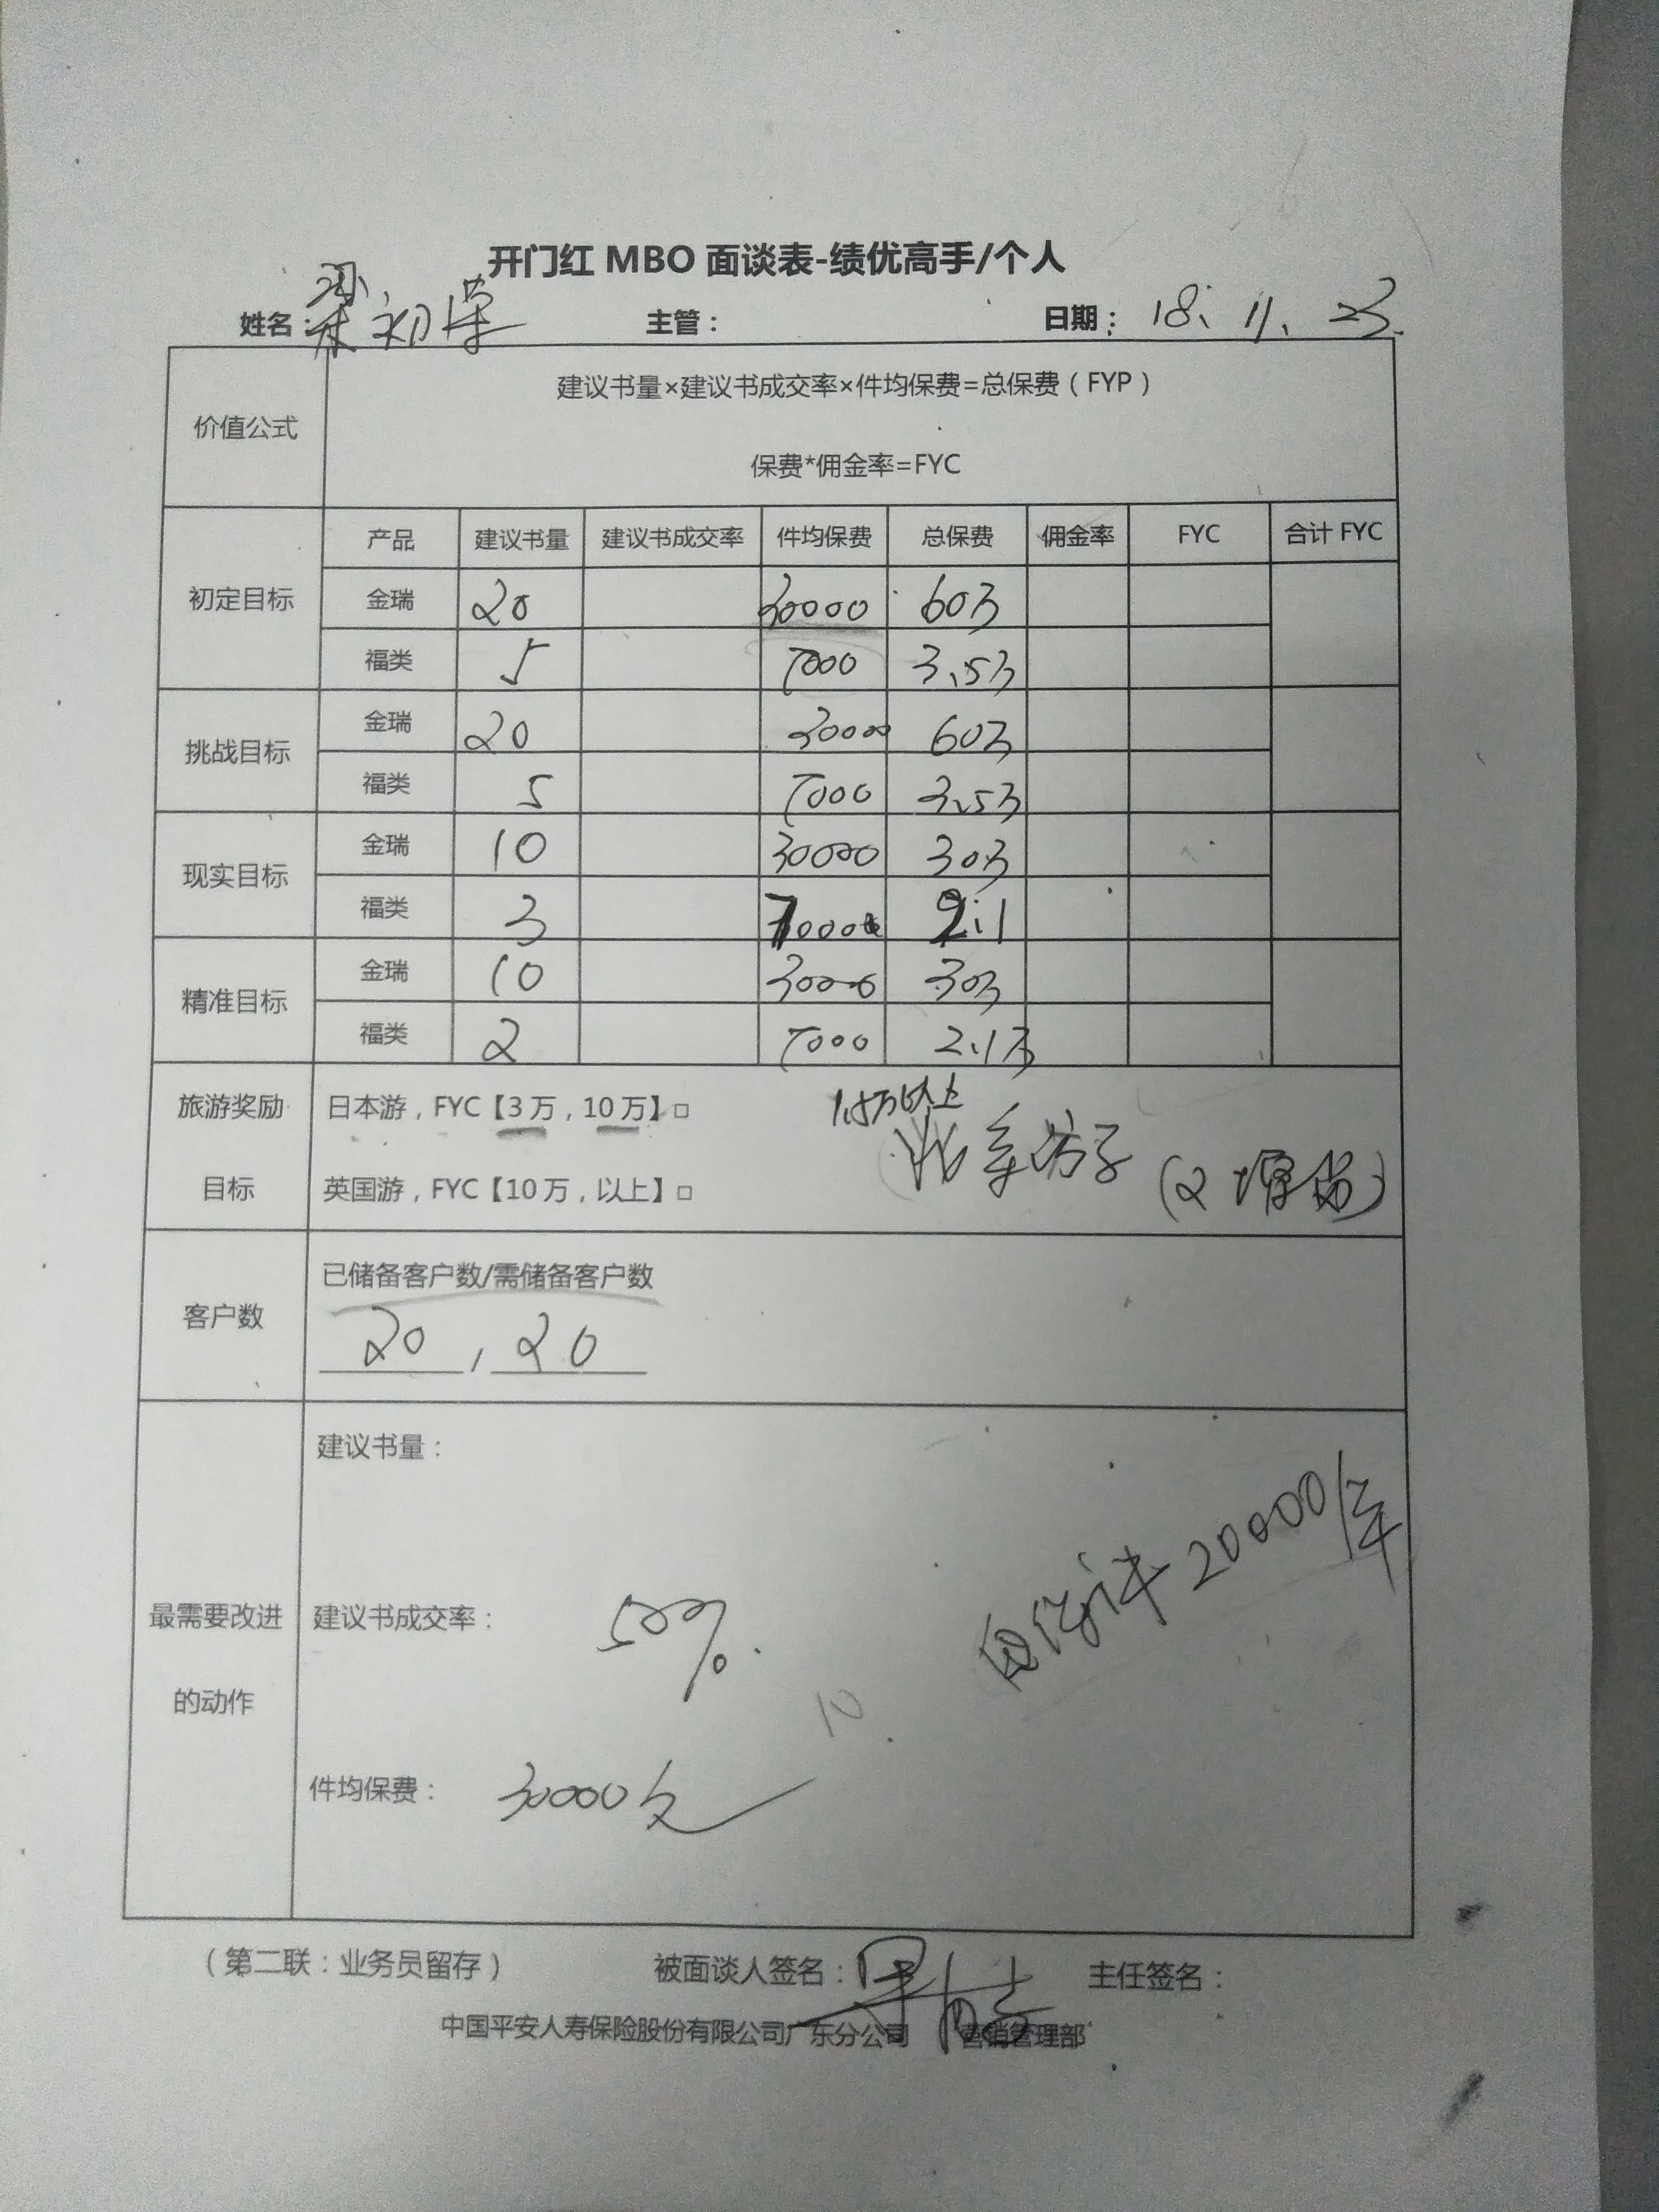 开门红 MBO 面谈表-绩优高手/个人
姓名：梁初荣 主管： 日期：18. 11. 23.
价值公式
建议书量×建议书成交率×件均保费=总保费（FYP）
保费*佣金率=FYC
产品 建议书量 建议书成交率 件均保费 总保费 佣金率 FYC 合计 FYC
初定目标
金瑞 20 30000 60万
福类 5 7000 3.5万
挑战目标
金瑞 20 30000 60万
福类 5 7000 3.5万
现实目标
金瑞 10 30000 30万
福类 3 7000 2.1
精准目标
金瑞 10 30000 30万
福类 2 7000 2.1万
旅游奖励
目标
日本游，FYC【3万，10万】□
1.5万以上
英国游，FYC【10万，以上】□
客户数
已储备客户数/需储备客户数
20 , 20
最需要改进
的动作
建议书量：
建议书成交率： 50%.
10
20000/年
件均保费： 30000
（第二联：业务员留存） 被面谈人签名： 主任签名：
中国平安人寿保险股份有限公司广东分公司 营销管理部